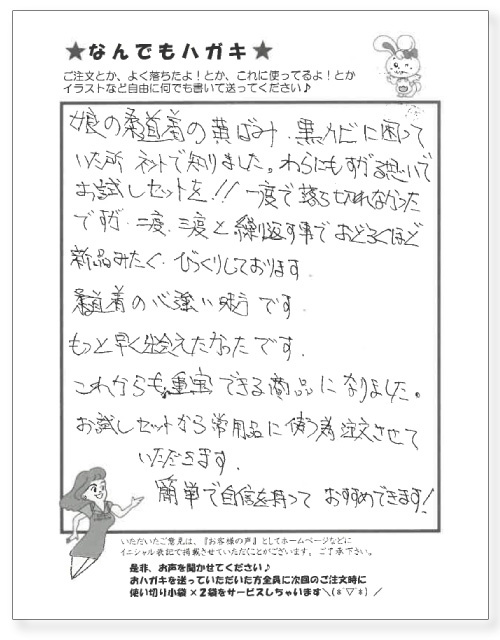 ★なんでもハガキ★
ご注文とか、よく落ちたよ！とか、これに使ってるよ！とか
イラストなど自由に何でも書いて送ってください♪
娘の柔道着の黄ばみ、黒カビに困って
いた所 ネットで知りました。わらにもすがる想いで
お試しセットを!! 一度で落ち切れなかった
ですが、二度、三度と繰り返す事でおどろくほど
新品みたく、びっくりしております。
柔道着の心強い味方です。
もっと早く出会えたかったです。
これからも重宝できる商品になりました。
お試しセットから常用品に使う為注文させて
いただきます。
簡単で自信を持っておすすめできます！
いただいたご意見は、『お客様の声』としてホームページなどに
イニシャル表記で掲載させていただくことがございます。ご了承下さい。
是非、お声を聞かせてください♪
おハガキを送っていただいた方全員に次回のご注文時に
使い切り小袋×2袋をサービスしちゃいます＼(*´▽｀*)／